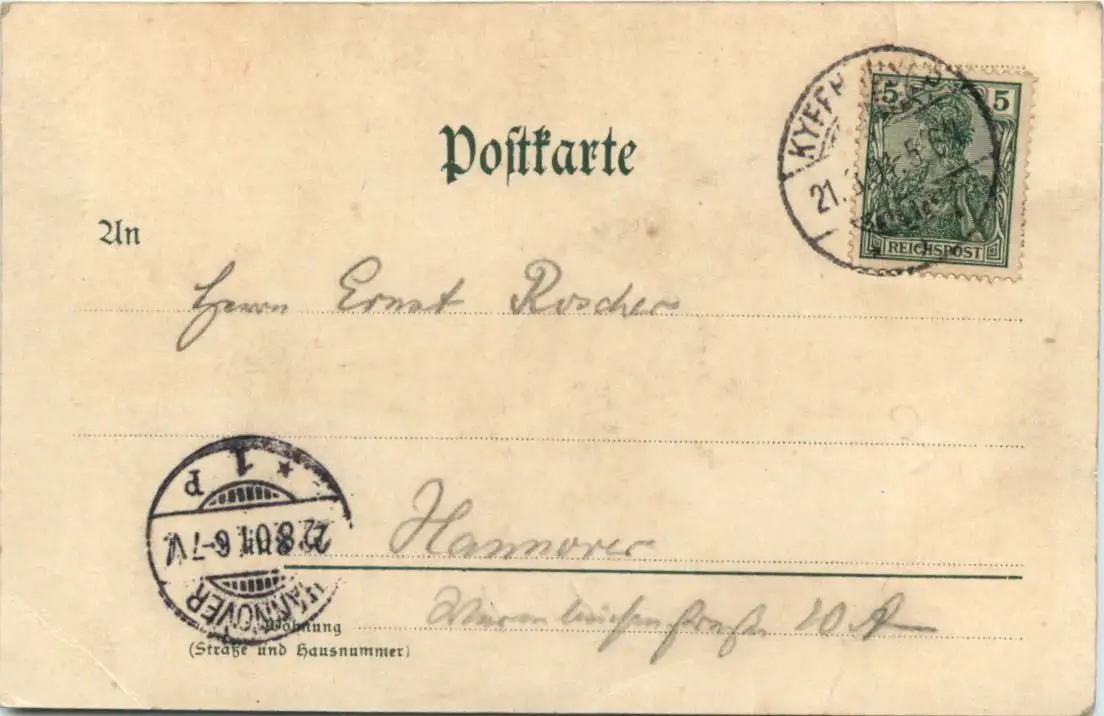 KYFFH
21. 8.
5 5
REICHSPOST
Postkarte
An
Herrn Ernst Roscher
Hannover
20 A
Wohnung
(Straße und Hausnummer)
HANNOVER
22.8.01. 6-7 V.
* 1 P